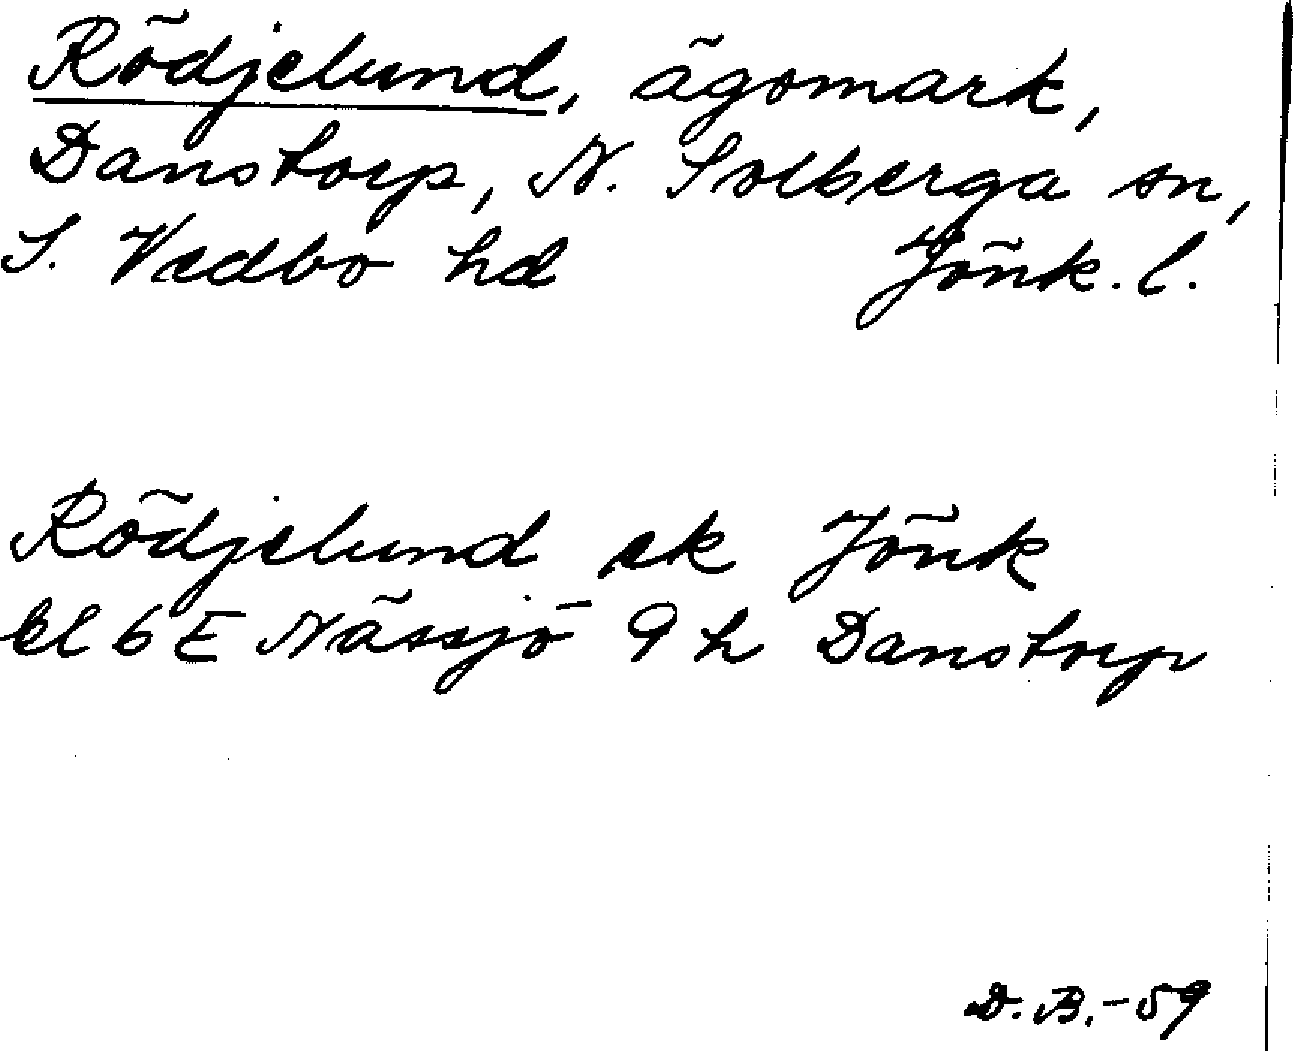 Rödjelund, ägomark,
Danstorp, N. Solberga sn,
S. Vedbo hd Jönk. l.
Rödjelund ek Jönk
bl 6 E Nässjö 9 h Danstorp
D. B. - 59